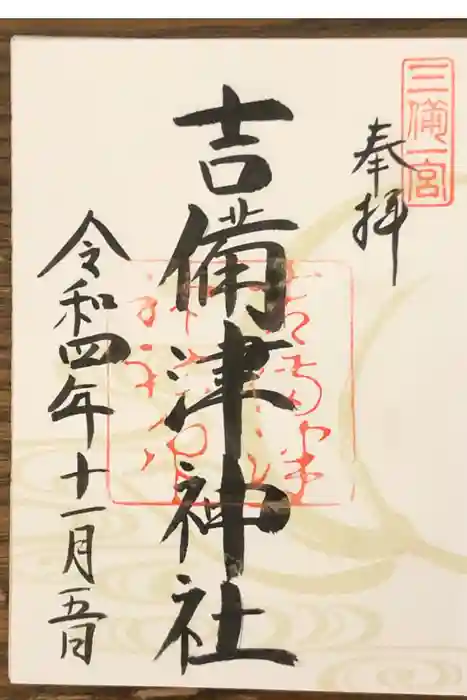 三備一宮
奉拝
吉備津神社
令和四年十一月五日